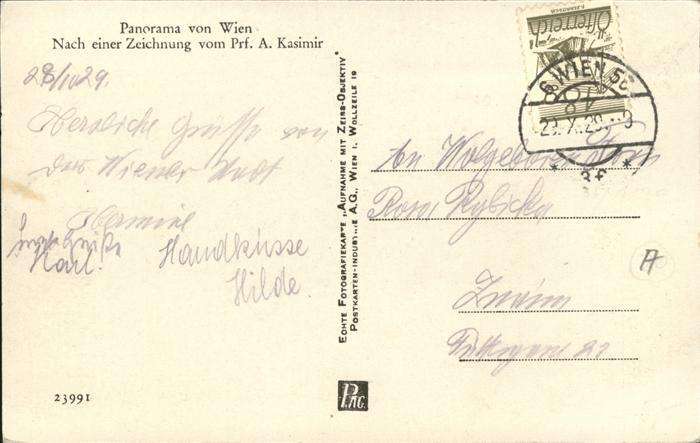 Panorama von Wien
Nach einer Zeichnung vom Prf. A. Kasimir
28/10 29.
Herzliche Grüsse von
der Wiener Stadt
Hermine
Karl.
Handküsse
Hilde.
23991
ECHTE FOTOGRAFIEKARTE „AUFNAHME MIT ZEISS-OBJEKTIV"
POSTKARTEN-INDUSTRIE A.G., WIEN I, WOLLZEILE 19
PAG.
Österreich
WIEN 56
An Wolgeboren
Rosa Rybicka
Znaim
22
A